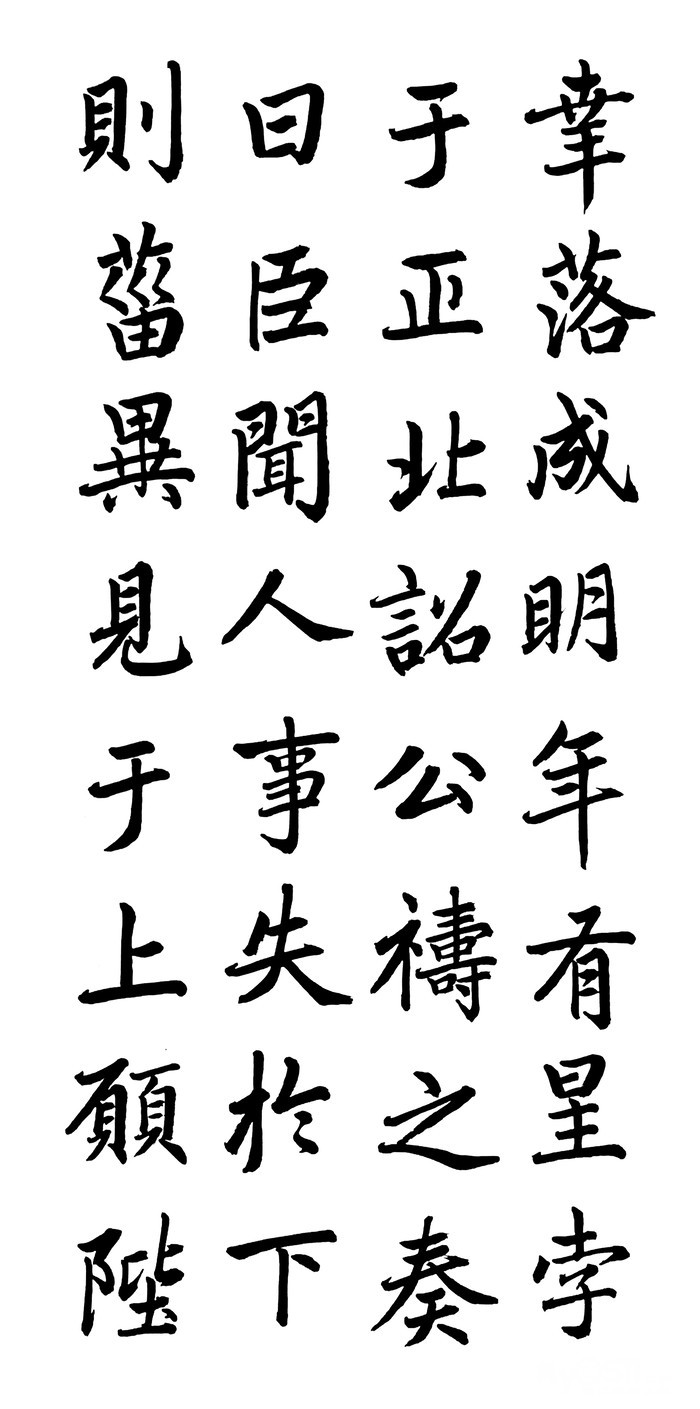 幸落成明年有星孛
于正北詔公禱之奏
曰臣聞人事失於下
則菑異見于上願陛